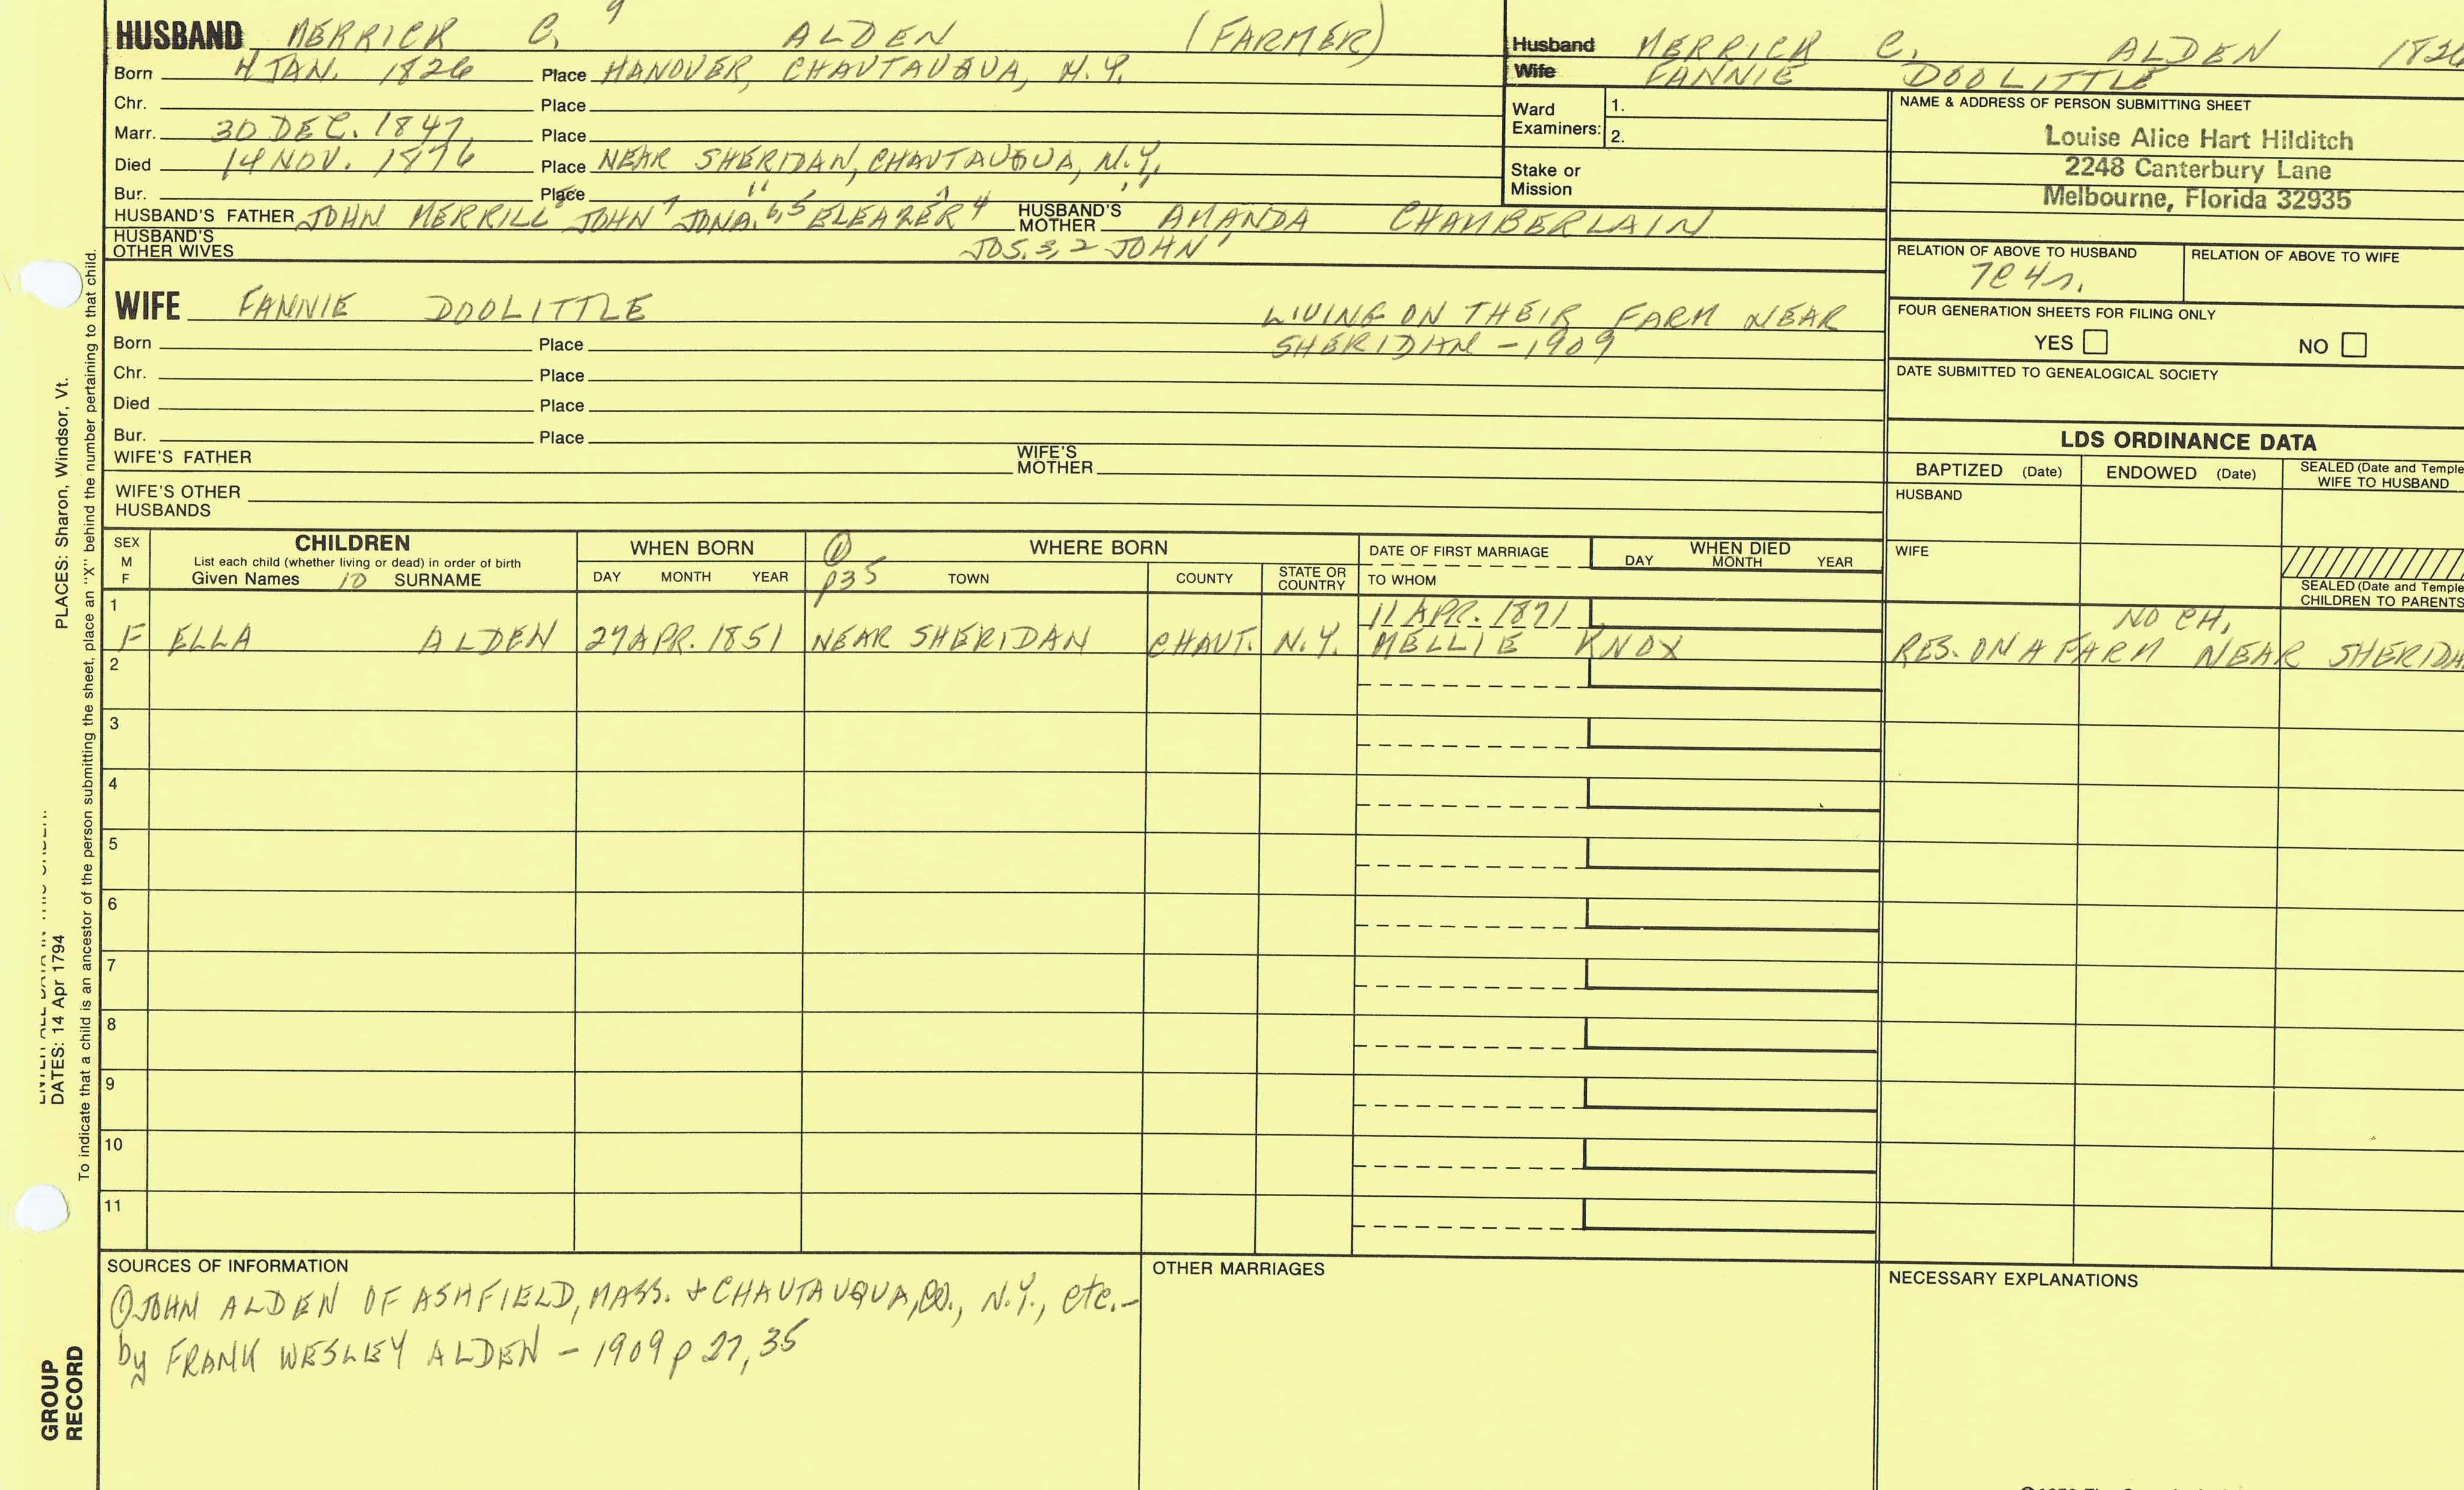 9
HUSBAND MERRICK C. ALDEN (FARMER)
Born 4 JAN. 1826 Place HANOVER, CHAUTAUQUA, N.Y.
Chr. Place
Marr. 30 DEC. 1847 Place
Died 14 NOV. 1876 Place NEAR SHERIDAN, CHAUTAUQUA, N.Y.
Bur. Place " " "
HUSBAND'S FATHER JOHN MERRILL8 JOHN7 JONA.6,5 ELEAZER4 HUSBAND'S MOTHER AMANDA CHAMBERLAIN
HUSBAND'S OTHER WIVES JOS.3,2 JOHN1
WIFE FANNIE DOOLITTLE LIVING ON THEIR FARM NEAR
SHERIDAN - 1909
Born Place
Chr. Place
Died Place
Bur. Place
WIFE'S FATHER WIFE'S MOTHER
WIFE'S OTHER HUSBANDS
Husband MERRICK C. ALDEN 1826
Wife FANNIE DOOLITTLE
Ward Examiners: 1.
2.
Stake or Mission
NAME & ADDRESS OF PERSON SUBMITTING SHEET
Louise Alice Hart Hilditch
2248 Canterbury Lane
Melbourne, Florida 32935
RELATION OF ABOVE TO HUSBAND RELATION OF ABOVE TO WIFE
7C4r.
FOUR GENERATION SHEETS FOR FILING ONLY
YES NO
DATE SUBMITTED TO GENEALOGICAL SOCIETY
LDS ORDINANCE DATA
BAPTIZED (Date) ENDOWED (Date) SEALED (Date and Temple
WIFE TO HUSBAND
HUSBAND
WIFE
SEALED (Date and Temple
CHILDREN TO PARENTS
SEX M F CHILDREN
List each child (whether living or dead) in order of birth
Given Names 10 SURNAME
WHEN BORN
DAY MONTH YEAR
① p35 WHERE BORN
TOWN COUNTY STATE OR COUNTRY
DATE OF FIRST MARRIAGE
TO WHOM
WHEN DIED
DAY MONTH YEAR
1 11 APR. 1871 NO CH.
F ELLA ALDEN 27 APR. 1851 NEAR SHERIDAN CHAUT. N.Y. MELLIE KNOX RES. ON A FARM NEAR SHERIDA
2
3
4
5
6
7
8
9
10
11
SOURCES OF INFORMATION
① JOHN ALDEN OF ASHFIELD, MASS. + CHAUTAUQUA, CO., N.Y., etc.-
by FRANK WESLEY ALDEN - 1909 p 27, 35
OTHER MARRIAGES
NECESSARY EXPLANATIONS
PLACES: Sharon, Windsor, Vt.
DATES: 14 Apr 1794
To indicate that a child is an ancestor of the person submitting the sheet, place an "X" behind the number pertaining to that child.
GROUP
RECORD